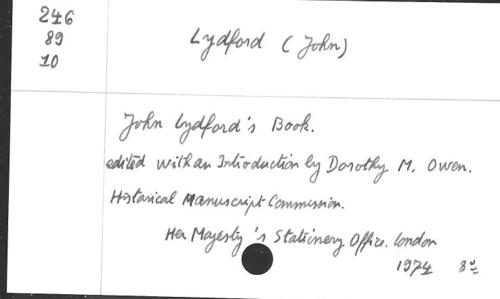 246
89
10
Lydford (John)
John Lydford's Book.
edited with an Introduction by Dorothy M. Owen.
Historical Manuscript Commission.
Her Majesty's Stationery Office. London
1974 8º